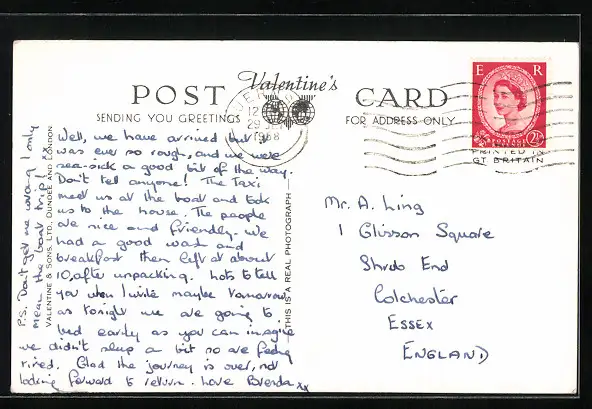 Valentine's
POST CARD
SENDING YOU GREETINGS
FOR ADDRESS ONLY
E R
POSTAGE
2½
PRINTED IN
GT BRITAIN
JER
12
29 SE
1958
Well, we have arrived but it
was ever so rough, and we were
sea-sick a good bit of the way.
Don't tell anyone! The Taxi
met us at the boat and took
us to the house. The people
are nice and friendly. We
had a good wash and
breakfast then left at about
10, after unpacking. Lots to tell
you when I write maybe tomorrow
as tonight we are going to
bed early as you can imagine
we didn't sleep a bit so are feeling
tired. Glad the journey is over, not
looking forward to return. Love Brenda xx
P.S. Don't get me wrong I only
mean the boat trip! xx
VALENTINE & SONS, LTD., DUNDEE AND LONDON
THIS IS A REAL PHOTOGRAPH
Mr. A. Ling
1 Glisson Square
Shrub End
Colchester
ESSEX
ENGLAND